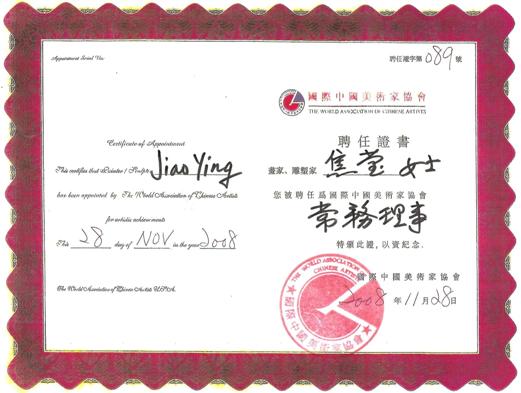 Appointment Serial No:
聘任證字第089號
國際中國美術家協會
THE WORLD ASSOCIATION OF CHINESE ARTISTS
Certificate of Appointment
This certifies that Painter / Sculptor Jiao Ying
has been appointed by The World Association of Chinese Artists
for artistic achievements
This 28 day of NOV in the year 2008
The World Association of Chinese Artists U.S.A.
聘任證書
畫家、雕塑家 焦莹 女士
您被聘任爲國際中國美術家協會
常務理事
特頒此證，以資紀念.
國際中國美術家協會
2008年11月28日
THE WORLD ASSOCIATION
CHINESE ARTISTS
國際中國美術家協會